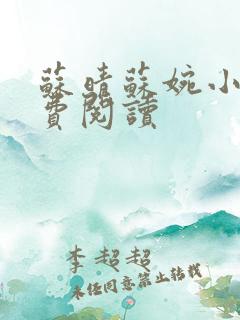 蘇晴蘇婉小
費閱讀
李超超
未任同意禁止转载